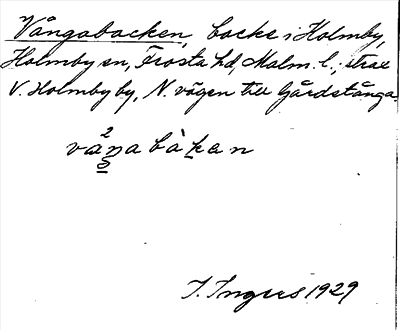 Vångabacken, backe i Holmby,
Holmby sn, Frosta hd, Malm. l., strax
V. Holmby by, N. vägen till Gårdstånga.
va²ŋabàkan
I. Ingers 1929